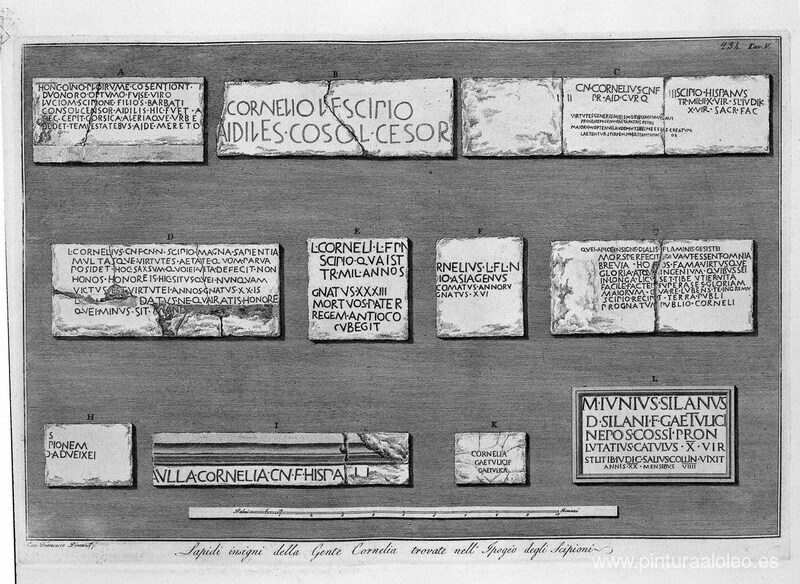 234 Tav. V.
A
HONC OINO · PLOIRVME · COSENTIONT
DVONORO · OPTVMO · FVISE · VIRO
LVCIOM · SCIPIONE · FILIOS · BARBATI
CONSOL · CENSOR · AIDILIS · HIC · FVET · A
HEC · CEPIT · CORSICA · ALERIAQVE · VRBE
DEDET · TEMPESTATEBVS · AIDE · MERETO
B
CORNELIO L F SCIPIO
AIDILES · COSOL · CESOR
C
CN · CORNELIVS · CN · F
PR · AID · CVR · Q
SCIPIO · HISPANVS
TR · MIL · II · X · VIR · SL · IVDIK
X · VIR · SACR · FAC
D
L · CORNELIVS · CN · F · CN · N · SCIPIO · MAGNA · SAPIENTIA
MVLTASQVE · VIRTVTES · AETATE · QVOM · PARVA
POSIDET · HOC · SAXSVM · QVOIEI · VITA · DEFECIT · NON
HONOS · HONORE · IS · HIC · SITVS · QVEI · NVNQVAM
VICTVS · EST · VIRTVTEI · ANNOS · GNATVS · XX · IS
DATVS · NE · QVAIRATIS · HONORE
QVEI · MINVS · SIT · MAND
E
L · CORNELI · L · F · P · N
SCIPIO · QVAIST
TR · MIL · ANNOS
GNATVS · XXXIII
MORTVOS · PATER
REGEM · ANTIOCO
SVBEGIT
F
RNELIVS · L · F · L · N
IO · ASIAGENVS
COMATVS · ANNORV
GNATVS · XVI
QVEI · APICE · INSIGNE · DIALIS · FLAMINIS · GESISTEI
MORS · PERFECIT · TVA · VT · ESSENT · OMNIA
BREVIA · HONOS · FAMA · VIRTVSQVE
GLORIA · ATQVE · INGENIVM · QVIBVS · SEI
IN · LONGA · LICVISET · TIBE · VTIER · VITA
FACILE · FACTEIS · SVPERASES · GLORIAM
MAIORVM · QVARE · LVBENS · TE · IN · GREMIV
SCIPIO · RECIPIT · TERRA · PVBLI
PROGNATVM · PVBLIO · CORNELI
H
S
PIONEM
O · ADVEIXEI
I
AVLLA · CORNELIA · CN · F · HISPALLI
K
CORNELIA
GAETVLICI · F
GAETVLICA
L
M · IVNIVS · SILANVS
D · SILANI · F · GAETVLICI
NEPOS · COSSI · PRON
LVTATIVS · CATVLVS · X · VIR
STLITIB · IVDIC · SALIVS · COLLIN · VIXIT
ANNIS · XX · MENSIBVS · VIIII
Palmi
Romani
Cav. Francesco Piranesi F.
Lapidi insigni della Gente Cornelia trovate nell' Ipogèo degli Scipioni
www.pinturaaloleo.es